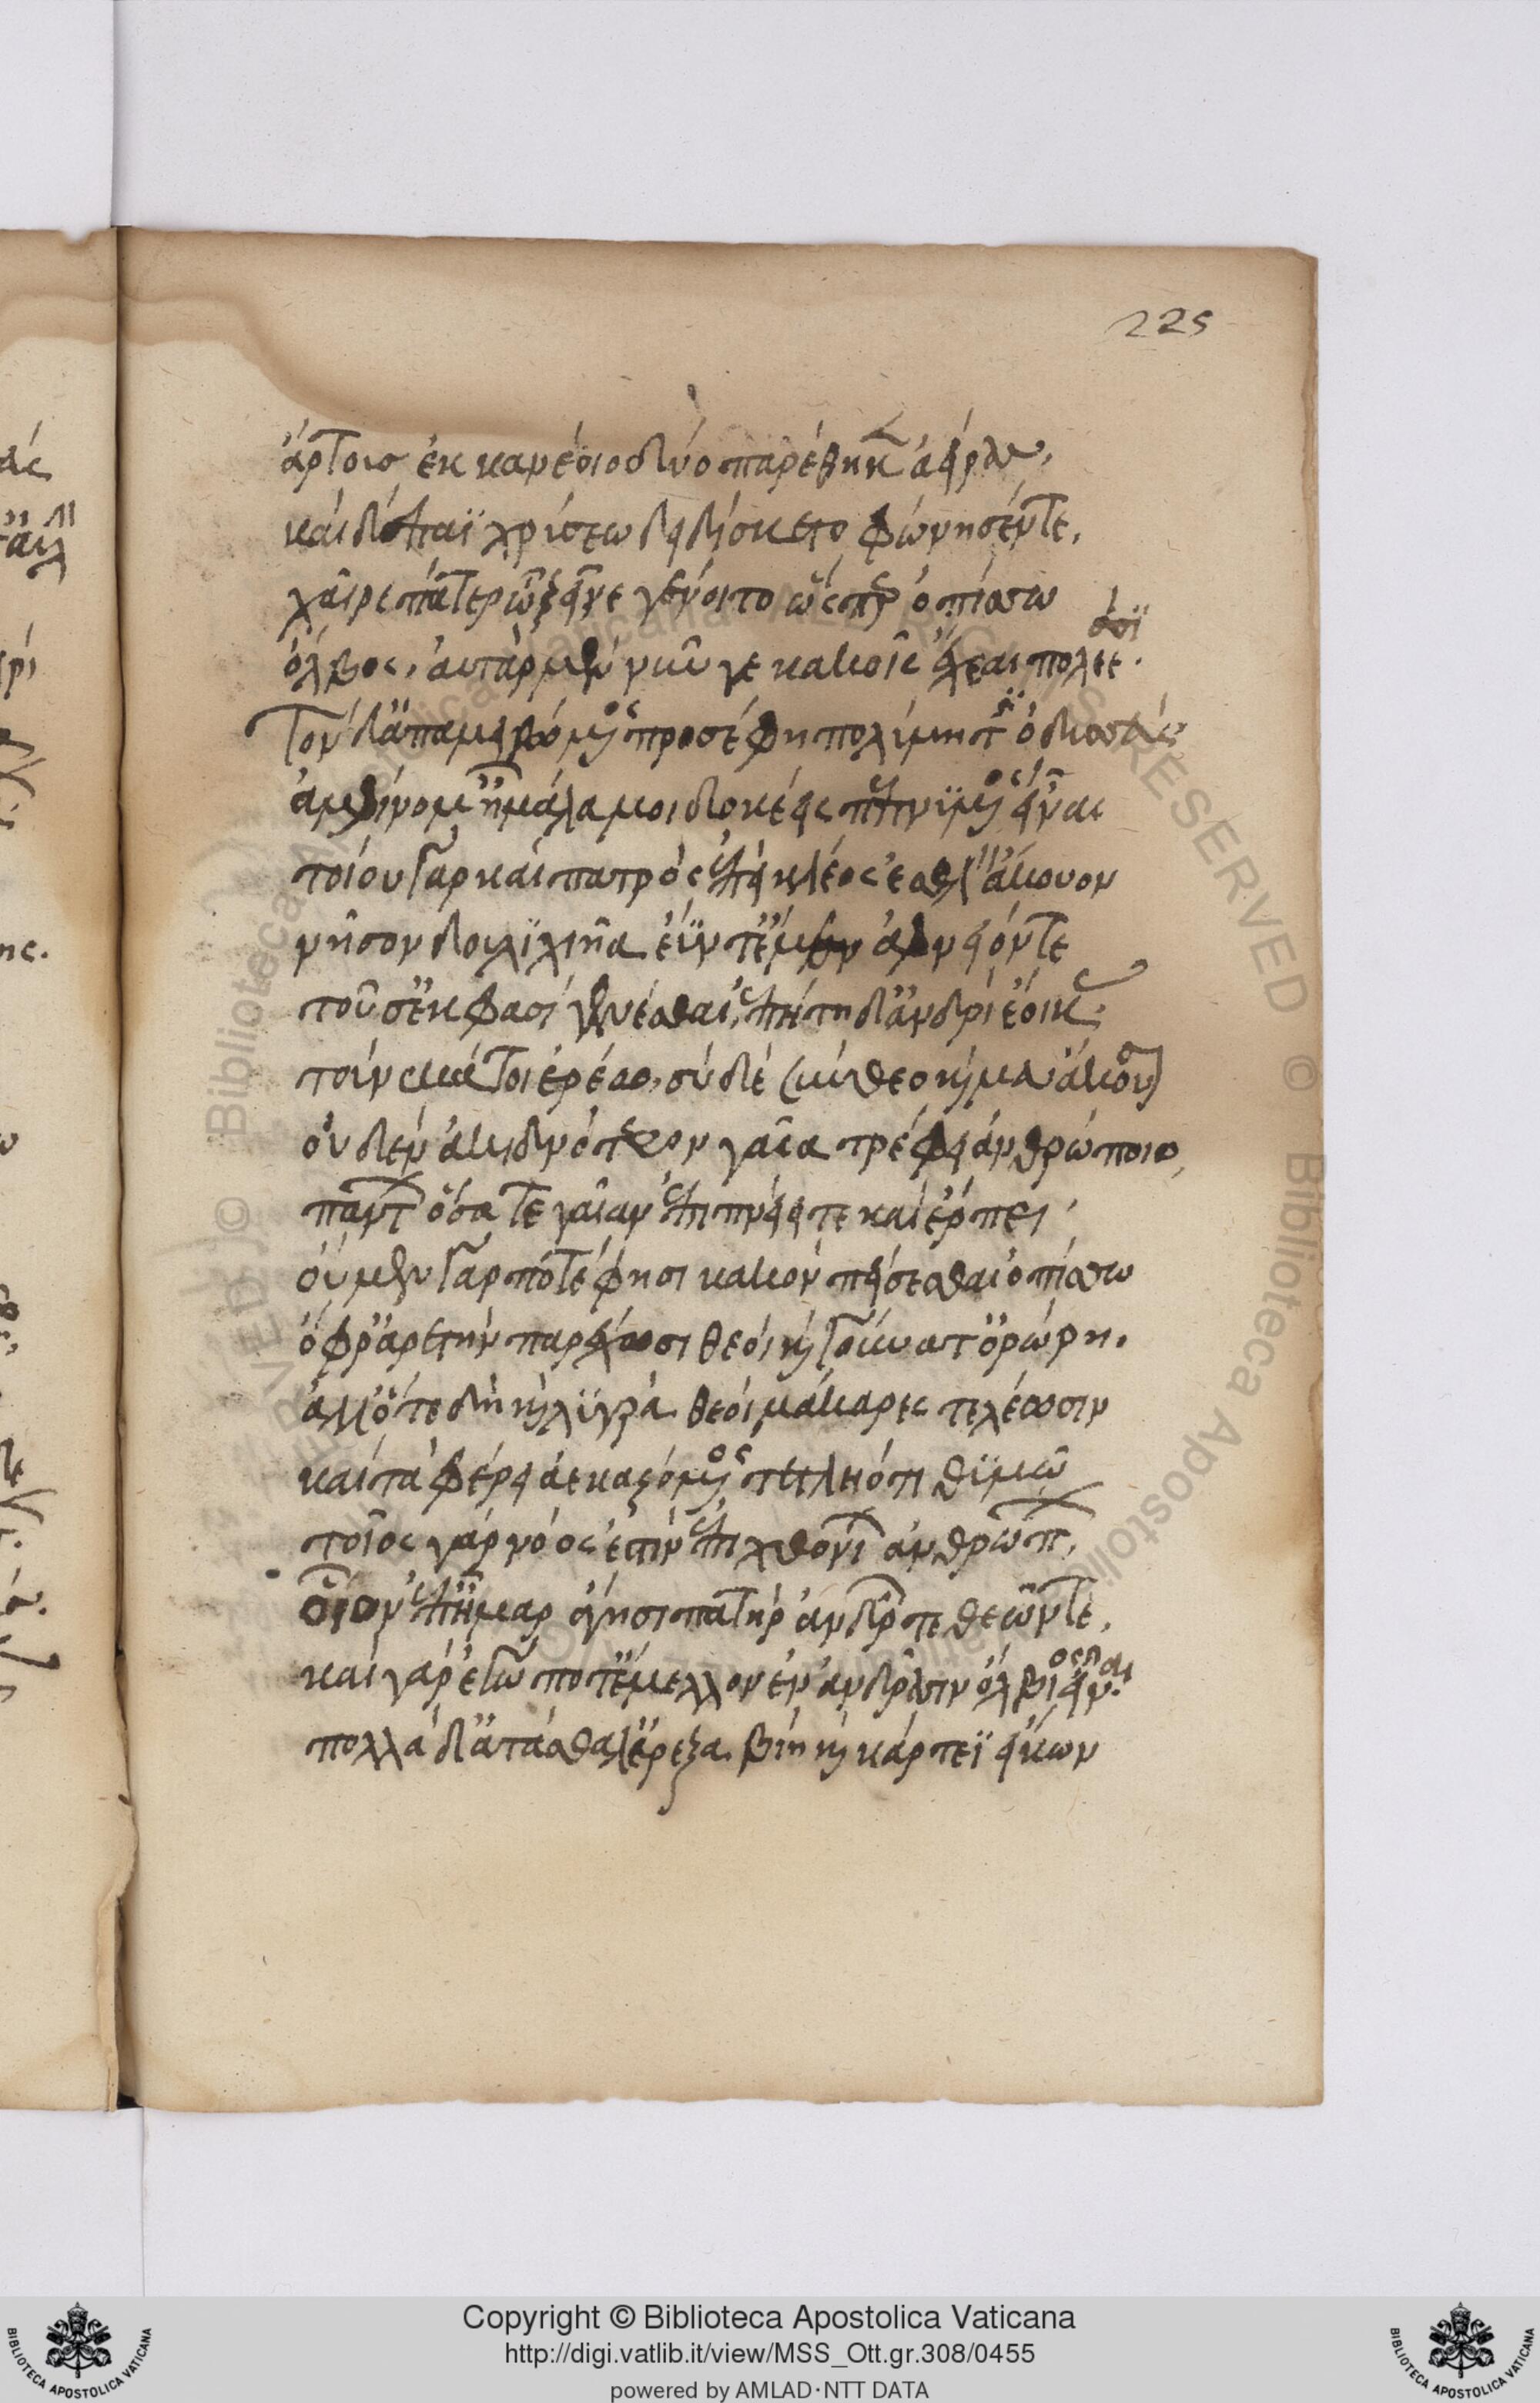 225
ἄρτους ἐκ κανέοιο δύο παρέθηκεν ἀείρας,
καὶ δέπαϊ χρυσέω δηδίσκετο φώνησέν τε,
χαῖρε πάτερ ὦ ξεῖνε γένοιτό τοι ὥς περ ὀπίσσω
ὄλβος, ἀτὰρ μὲν νῦν γε κακοῖς ἔχεαι πολέεσσι.
Τὸν δ' ἀπαμειβόμενος προσέφη πολύμητις ὀδυσσεύς
ἀμφίνομ' ἦ μάλα μοι δοκέεις πεπνυμένος εἶναι
τοίου γὰρ καὶ πατρός ἐπεὶ κλέος ἐσθλὸν ἄκουον
νῆσον δουλιχιῆα ἐΰν τ' ἔμεν ἀφνειόν τε
τοῦ σ' ἔκ φασι γενέσθαι, ἐπητῆ δ' ἀνδρὶ ἔοικας
τούνεκά τοι ἐρέω, σὺ δὲ σύνθεο καί μευ ἄκουσον
οὐδὲν ἀκιδνότερον γαῖα τρέφει ἀνθρώποιο,
πάντων ὅσα τε γαῖαν ἐπιπνείει τε καὶ ἕρπει
οὐ μὲν γάρ ποτέ φησι κακὸν πείσεσθαι ὀπίσσω
ὄφρ' ἀρετὴν παρέχωσι θεοὶ καὶ γούνατ' ὀρώρη.
ἀλλ' ὅτε δὴ καὶ λυγρὰ θεοὶ μάκαρες τελέσωσιν
καὶ τὰ φέρει ἀεκαζόμενος τετληότι θυμῶ
τοῖος γὰρ νόος ἐστὶν ἐπιχθονίων ἀνθρώπων,
οἷον ἐπ' ἦμαρ ἄγησι πατὴρ ἀνδρῶν τε θεῶν τε,
καὶ γὰρ ἐγώ ποτ' ἔμελλον ἐν ἀνδράσιν ὄλβιος εἶναι
πολλὰ δ' ἀτάσθαλ' ἔρεξα βίη καὶ κάρτεϊ εἴκων
Copyright © Biblioteca Apostolica Vaticana
http://digi.vatlib.it/view/MSS_Ott.gr.308/0455
powered by AMLAD·NTT DATA